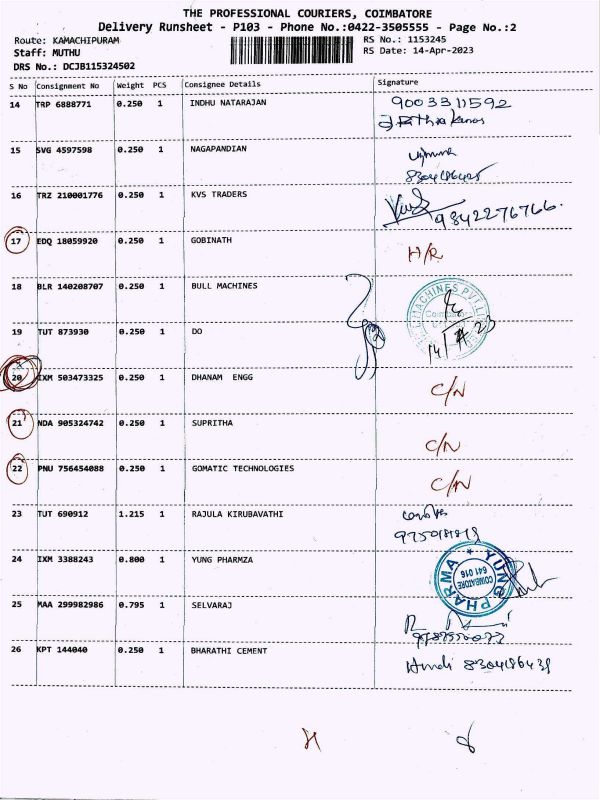 THE PROFESSIONAL COURIERS, COIMBATORE
Delivery Runsheet - P103 - Phone No.:0422-3505555 - Page No.:2
Route: KAMACHIPURAM RS No.: 1153245
Staff: MUTHU RS Date: 14-Apr-2023
DRS No.: DCJB115324502
S No Consignment No Weight PCS Consignee Details Signature
14 TRP 6888771 0.250 1 INDHU NATARAJAN 9003311592
15 SVG 4597598 0.250 1 NAGAPANDIAN
8304186425
16 TRZ 210001776 0.250 1 KVS TRADERS 9842276766.
17 EDQ 18059920 0.250 1 GOBINATH H/R
18 BLR 140208707 0.250 1 BULL MACHINES MACHINES PVT. LTD
19 TUT 873930 0.250 1 DO 14/4/23
20 IXM 503473325 0.250 1 DHANAM ENGG C/N
21 NDA 905324742 0.250 1 SUPRITHA C/N
22 PNU 756454088 0.250 1 GOMATIC TECHNOLOGIES C/N
23 TUT 690912 1.215 1 RAJULA KIRUBAVATHI
24 IXM 3388243 0.800 1 YUNG PHARMZA YUNG PHARMA COIMBATORE 641 016
25 MAA 299982986 0.795 1 SELVARAJ
26 KPT 144040 0.250 1 BHARATHI CEMENT